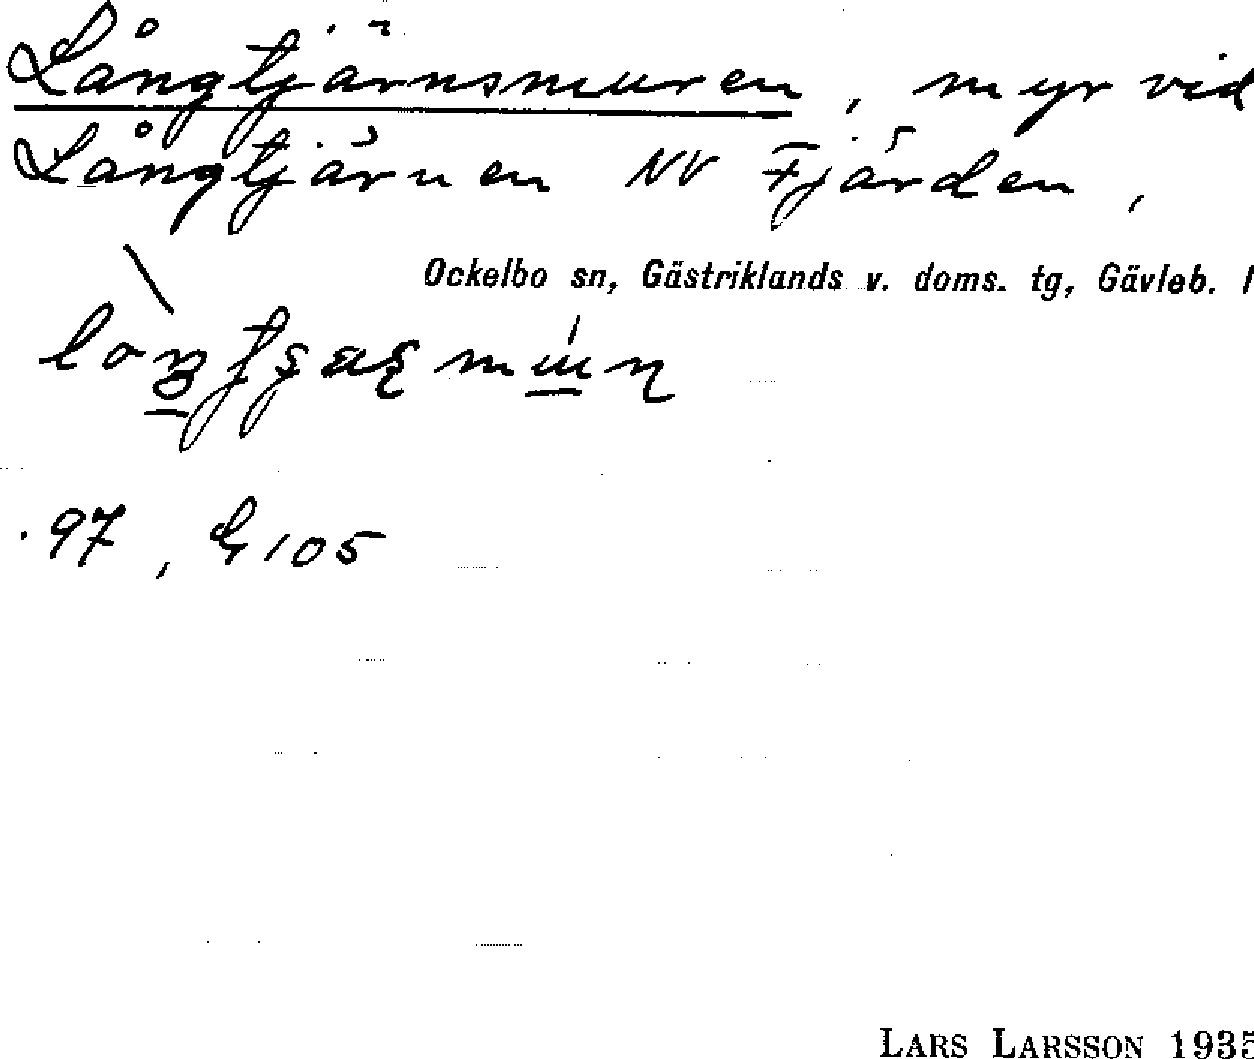 Långtjärnsmuren, myr vid
Långtjärnen NV Fjärden,
Ockelbo sn, Gästriklands v. doms. tg, Gävleb. l
97, G 105
LARS LARSSON 1935